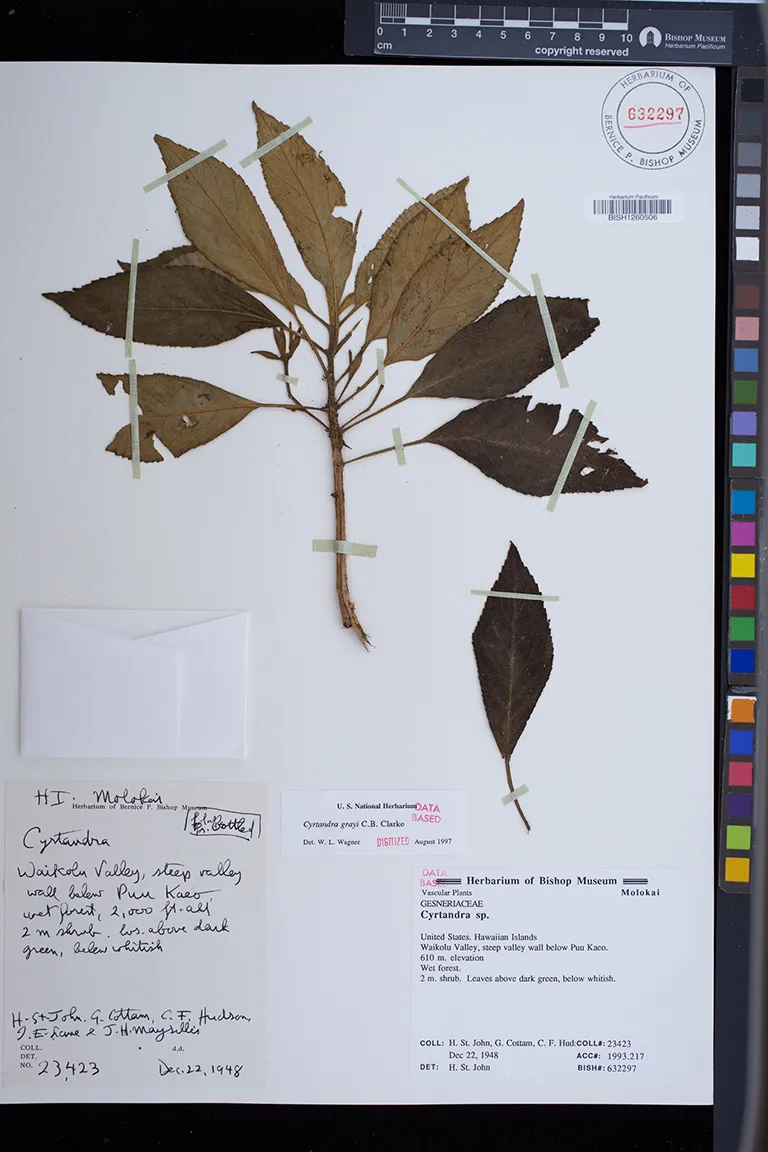 0 1 2 3 4 5 6 7 8 9 10
cm
copyright reserved
BISHOP MUSEUM
Herbarium Pacificum
HERBARIUM OF
632297
BERNICE P. BISHOP MUSEUM
Herbarium Pacificum
BISH1260506
HI. Molokai
Herbarium of Bernice P. Bishop Museum
Bottled
Cyrtandra
Waikolu Valley, steep valley
wall below Puu Kaeo,
wet forest, 2,000 ft. alt.
2 m shrub. lvs. above dark
green, below whitish
H. St. John, G. Cottam, C. F. Hudson,
J. E. Lane & J. H. Maysillis
COLL. d.d.
DET.
NO. 23,423 Dec. 22, 1948
U. S. National Herbarium
DATA
BASED
Cyrtandra grayi C.B. Clarke
Det. W. L. Wagner DIGITIZED August 1997
DATA
BAS
Herbarium of Bishop Museum
Vascular Plants Molokai
GESNERIACEAE
Cyrtandra sp.
United States. Hawaiian Islands
Waikolu Valley, steep valley wall below Puu Kaeo.
610 m. elevation
Wet forest.
2 m. shrub. Leaves above dark green, below whitish.
COLL: H. St. John, G. Cottam, C. F. Hud:COLL#: 23423
Dec 22, 1948 ACC#: 1993.217
DET: H. St. John BISH#: 632297